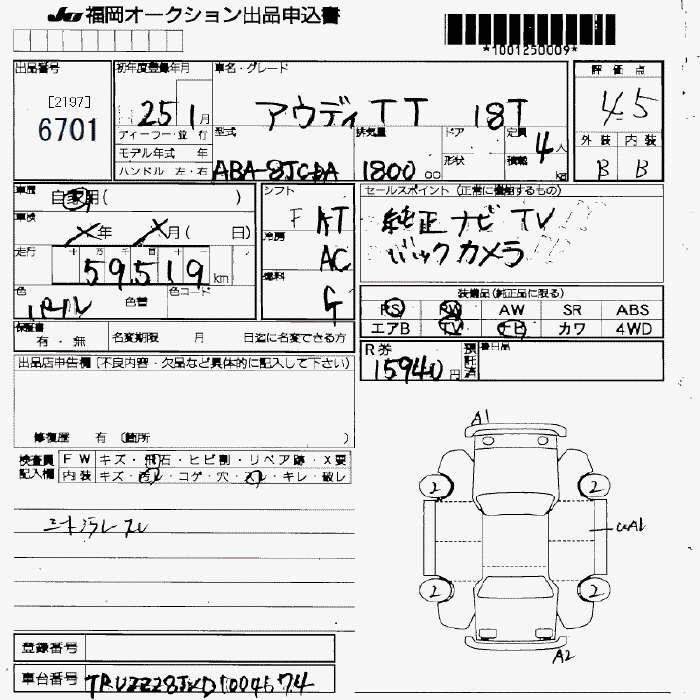 JU 福岡オークション出品申込書
*1001250009*
出品番号 初年度登録年月 車名・グレード 評価点
[2197]
6701
25 1月 アウディ TT 18T 4.5
ディーラー・並行 型式 排気量 ドア 定員 外装 内装
モデル年式 年 形状 積載 4人
ハンドル 左・右 1800 cc kg B B
車歴 自家用( ) シフト セールスポイント (正常に機能するもの)
F AT 純正ナビ TV
車検 年 月( 日) 冷房 バックカメラ
走行 十万千百十 AC
59,519 km 燃料
色 色替 色コード G 装備品(純正品に限る)
PS PW AW SR ABS
エアB TV カワ 4WD
保証書 有・無 名変期限 月 日迄に名変できる方
R券 預託済 15940円
出品店申告欄 (不良内容・欠品など具体的に記入して下さい)
修復歴 有 (箇所 )
検査員記入欄 FW キズ・飛石・ヒビ割・リペア跡・X要
内装 キズ・汚れ・コゲ・穴・スレ・キレ・破レ
A1
2 2
2 2
A2
登録番号
車台番号